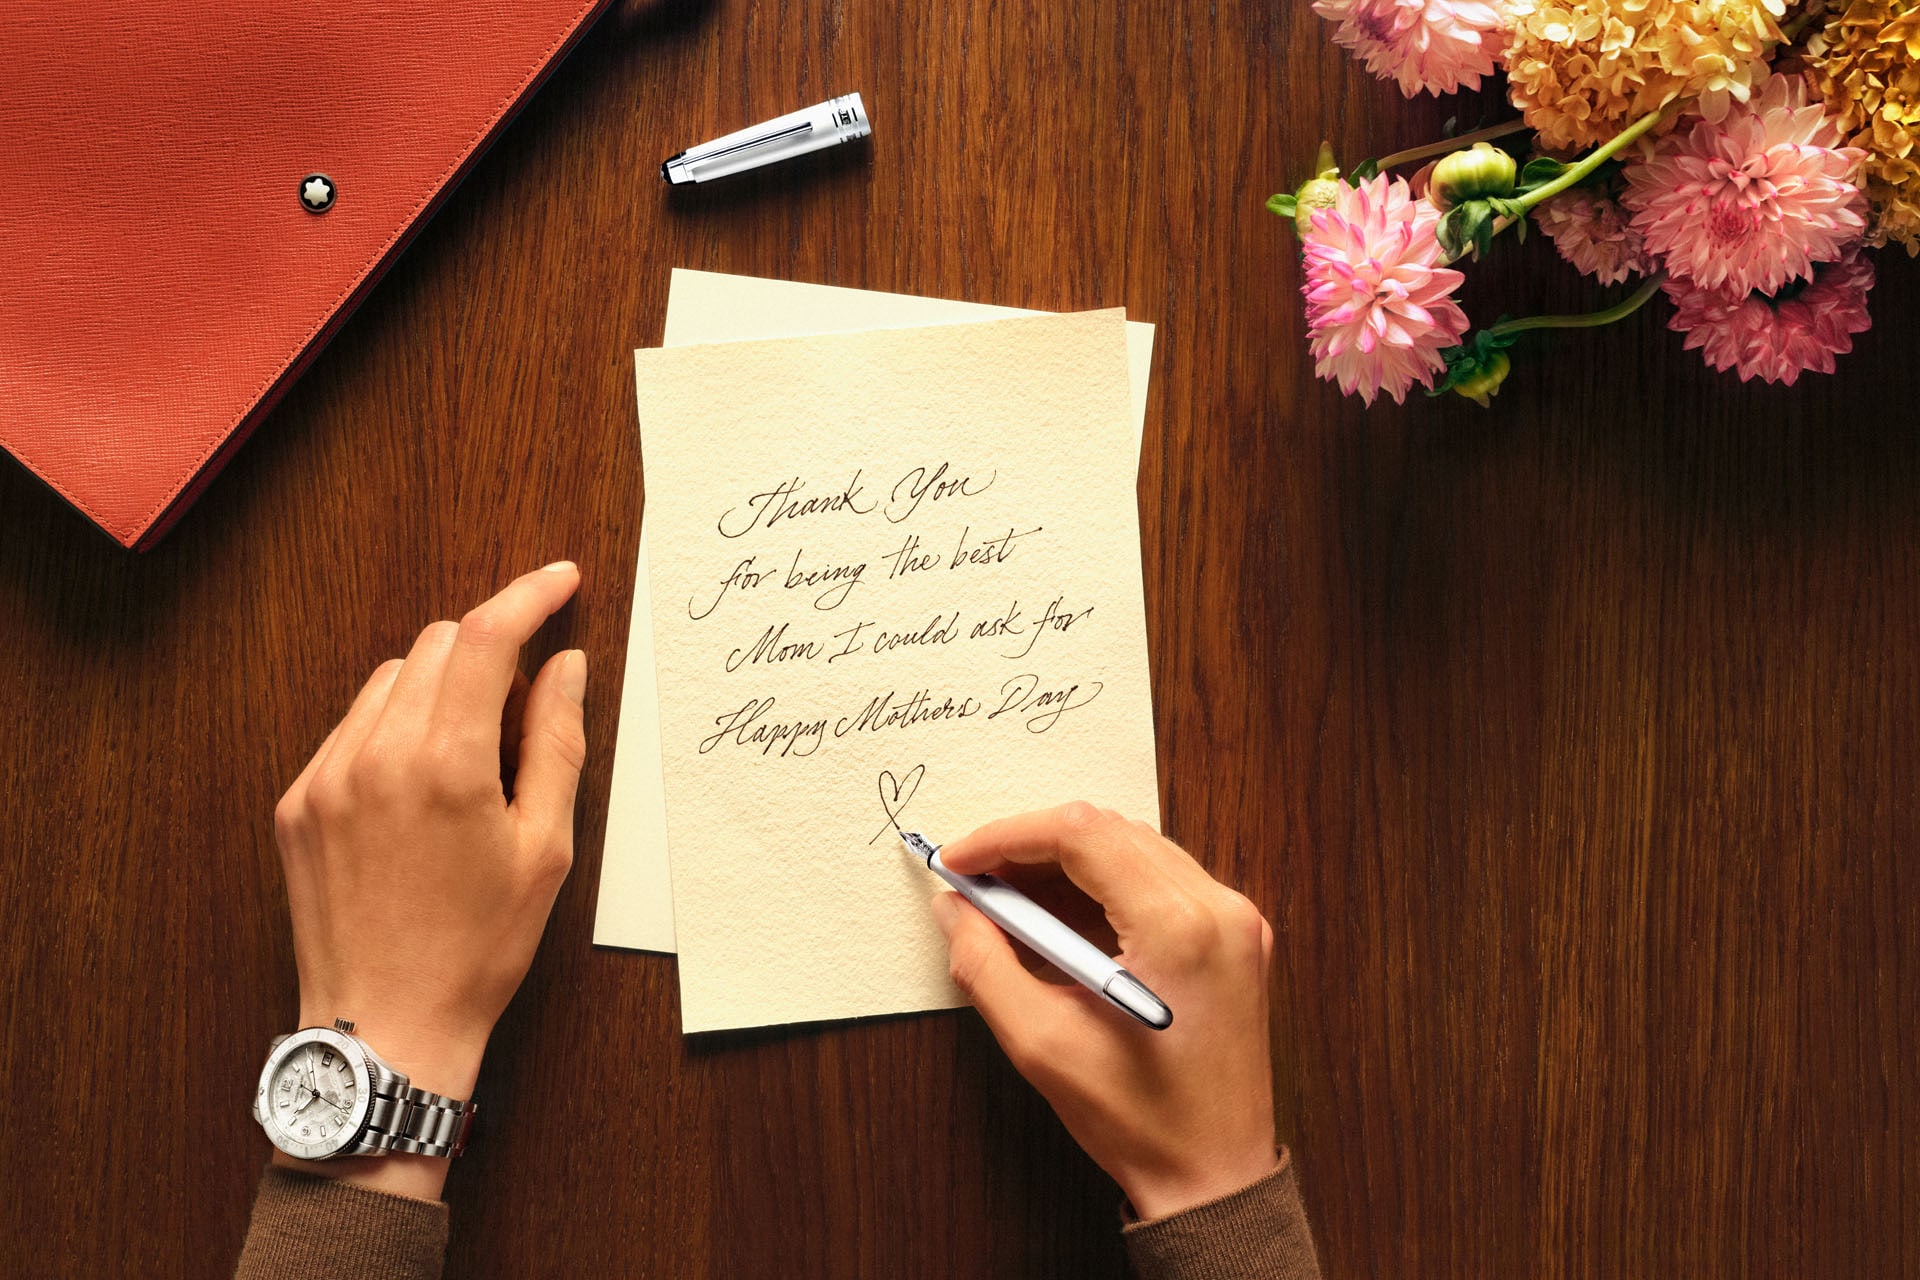 Thank You
for being the best
Mom I could ask for
Happy Mothers Day